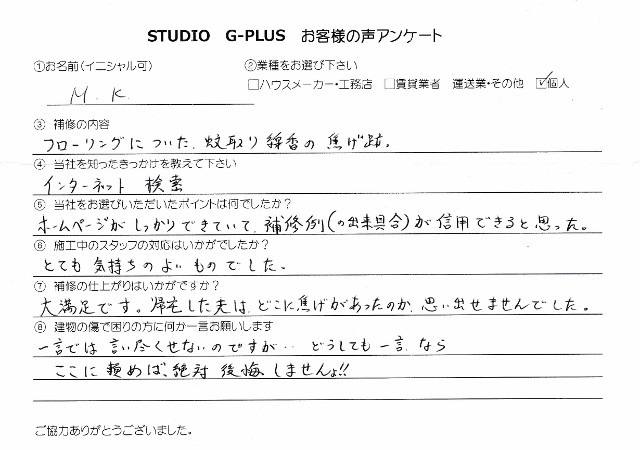 STUDIO G-PLUS お客様の声アンケート
①お名前(イニシャル可) ②業種をお選び下さい
M.K. □ハウスメーカー・工務店 □賃貸業者 運送業・その他 ☑個人
③ 補修の内容
フローリングについた、蚊取り線香の焦げ跡。
④ 当社を知ったきっかけを教えて下さい
インターネット 検索
⑤ 当社をお選びいただいたポイントは何でしたか?
ホームページがしっかりできていて、補修例(の出来具合)が信用できると思った。
⑥ 施工中のスタッフの対応はいかがでしたか?
とても気持ちのよいものでした。
⑦ 補修の仕上がりはいかがですか?
大満足です。帰宅した夫は、どこに焦げがあったのか、思い出せませんでした。
⑧ 建物の傷で困りの方に何か一言お願いします
一言では言い尽くせないのですが‥ どうしても一言なら
ここに頼めば、絶対後悔しませんよ!!
ご協力ありがとうございました。